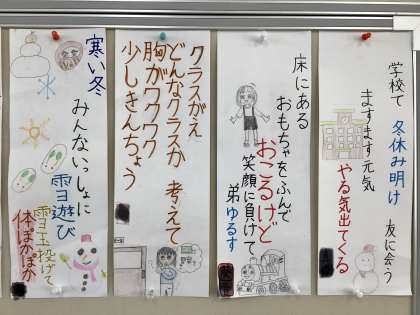 学校で 冬休み明け 友に会う
ますます元気
やる気出てくる
床にある
おもちゃをふんで
おこるけど
笑顔に負けて
弟ゆるす
クラスがえ
どんなクラスか 考えて
胸がワクワク
少しきんちょう
寒い冬
みんないっしょに
雪遊び
雪玉投げて
体ぽかぽか